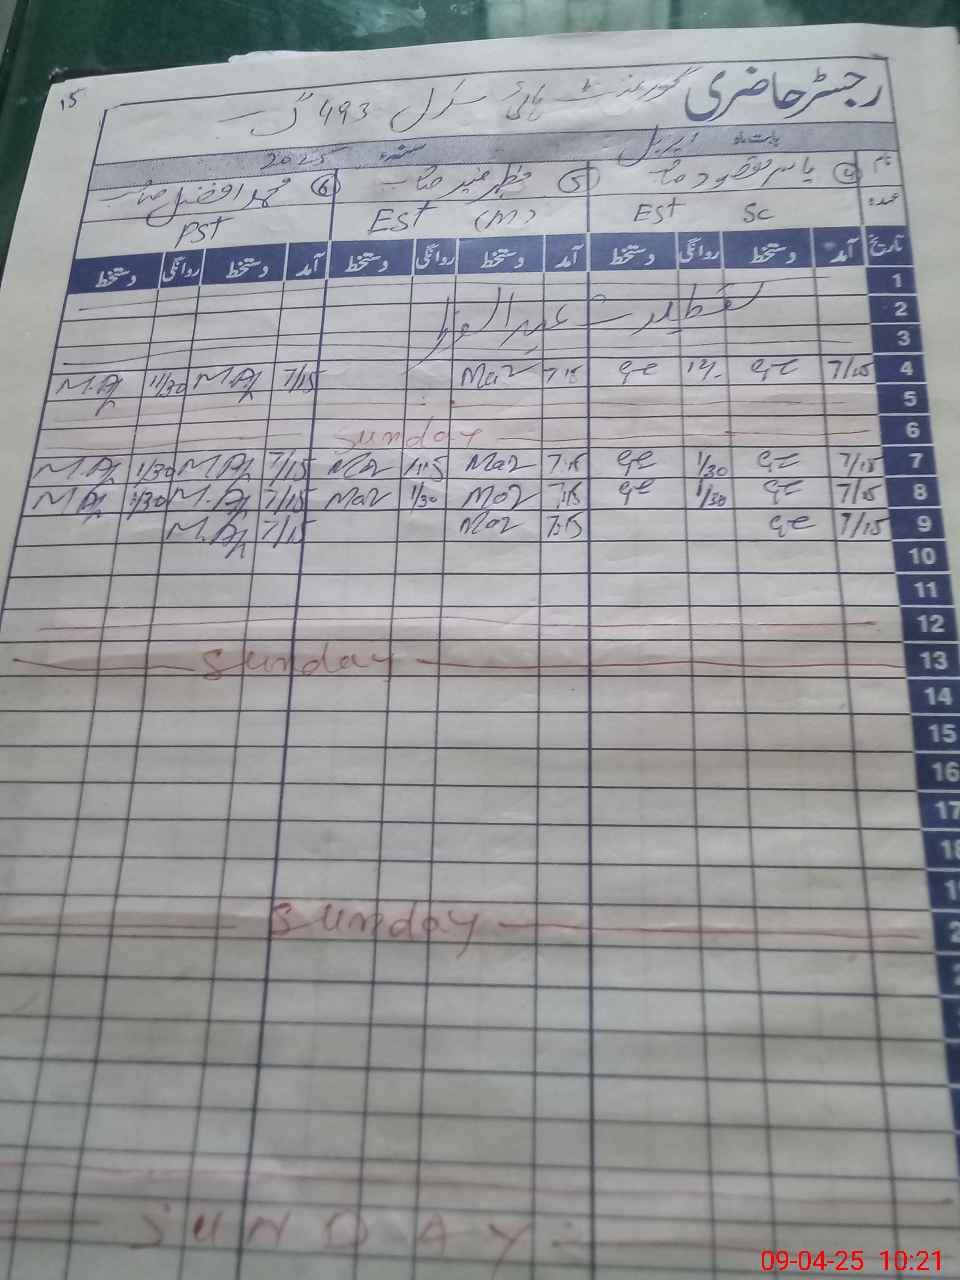 15
رجسٹر حاضری گورنمنٹ ہائی سکول 493 گ ب
بابت ماہ اپریل سنہ 2025
نام ④ یاسر مقصود صاحب ⑤ مظہر منیر صاحب ⑥ محمد افضل صاحب
عہدہ EST SC EST (M) PST
تاریخ آمد دستخط روانگی دستخط آمد دستخط روانگی دستخط آمد دستخط روانگی دستخط
1
2 تعطیلات عید الفطر
3
4 7/15 12/- Maz 7:15 7/15 M.Af 11/30 M.Af
5
6 Sunday
7 7/15 1/30 Maz 7:15 Maz 7/15 M.Af 1/30 M.Af
8 7/15 1/30 Maz 7:15 1/30 Maz 7/15 M.Af 1/30 M.Af
9 7/15 Maz 7:15 7/15 M.Af
10
11
12
13 Sunday
14
15
16
17
18
Sunday
SUNDAY
09-04-25 10:21